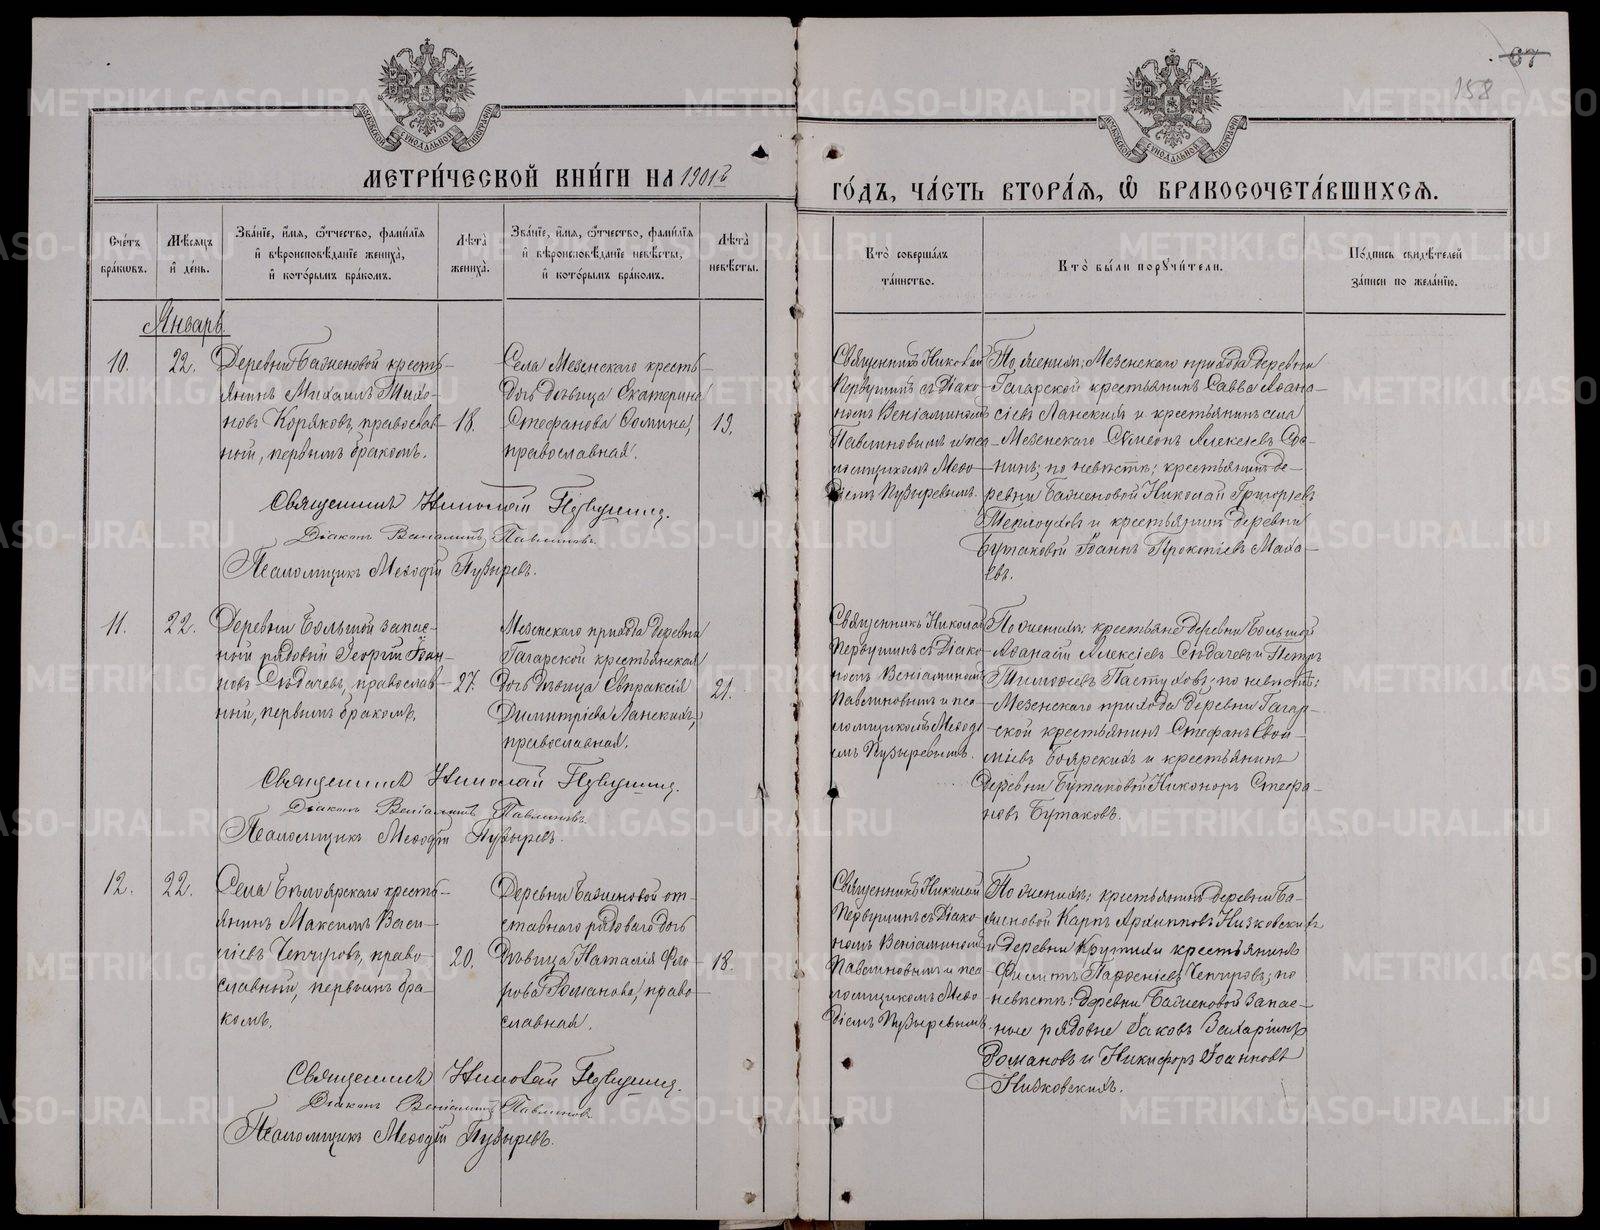 67
158
МЕТРИ́ЧЕСКОЙ КНИ́ГИ НА 1901й
ГО́ДЪ, ЧА́СТЬ ВТОРА́Я, Ѡ БРАКОСОЧЕТА́ВШИХСЯ.
Сче́тъ бра́ковъ.
Мѣ́сяцъ и де́нь.
Зва́ніе, и́мя, ѻ́тчество, фами́лія
и҆ вѣроисповѣ́даніе жениха̀,
и҆ кото́рымъ бра́комъ.
Лѣ́та жениха̀.
Зва́ніе, и́мя, ѻ́тчество, фами́лія
и҆ вѣроисповѣ́даніе невѣ́сты,
и҆ кото́рымъ бра́комъ.
Лѣ́та невѣ́сты.
Кто̀ соверша́лъ
та́инство.
Кто̀ бы́ли поручи́тели.
По́дпись свидѣ́телей
за́писи по жела́нію.
Январь
10.
22.
Деревни Баженовой кресть-
янинъ Михаилъ Тихо-
новъ Коряковъ, православ-
ный, первымъ бракомъ.
18.
Села Мезенскаго кресть-
дочь дѣвица Екатерина
Стефанова Сомина,
православная.
19.
Священникъ Николай
Первушинъ съ Діако-
номъ Веніаминомъ
Павлиновымъ и пса-
ломщикомъ Меѳо-
діемъ Пузыревымъ.
По женихѣ: Мезенскаго прихода деревни
Гагарской крестьянинъ Савва Аѳана-
сіевъ Ланскихъ и крестьянинъ села
Мезенскаго Симеонъ Алексіевъ Со-
минъ; по невѣстѣ: крестьянинъ де-
ревни Баженовой Николай Григорьевъ
и крестьянинъ деревни
Бутаковой Іоаннъ Прокопіевъ Маха-
евъ.
Священникъ Николай Первушинъ.
Діаконъ Веніаминъ Павлиновъ.
Псаломщикъ Меѳодій Пузыревъ.
11.
22.
Деревни Большой запас-
ный рядовой Георгій Іоан-
новъ Сѣдачевъ, православ-
ный, первымъ бракомъ.
27.
Мезенскаго прихода деревни
Гагарской крестьянская
дочь дѣвица Евпраксія
Димитріева Ланскихъ,
православная.
21.
Священникъ Николай
Первушинъ съ Діако-
номъ Веніаминомъ
Павлиновымъ и пса-
ломщикомъ Меѳоді-
емъ Пузыревымъ.
По женихѣ: крестьяне деревни Большой
Аѳанасій Алексіевъ Сѣдачевъ и Петръ
Тимоѳеевъ Пастуховъ; по невѣстѣ:
Мезенскаго прихода деревни Гагар-
ской крестьянинъ Стефанъ
Боярскихъ и крестьянинъ
деревни Бутаковой Никоноръ Стефа-
новъ Бутаковъ.
Священникъ Николай Первушинъ.
Діаконъ Веніаминъ Павлиновъ.
Псаломщикъ Меѳодій Пузыревъ.
12.
22.
Села Бѣлоярскаго кресть-
янинъ Максимъ Васи-
ліевъ Чепчуровъ, право-
славный, первымъ бра-
комъ.
20.
Деревни Баженовой от-
ставного рядоваго дочь
дѣвица Наталія Фло-
рова Романова, право-
славная.
18.
Священникъ Николай
Первушинъ съ Діако-
номъ Веніаминомъ
Павлиновымъ и пса-
ломщикомъ Меѳо-
діемъ Пузыревымъ.
По женихѣ: крестьянинъ деревни Ба-
женовой Карпъ Архипповъ Низковскихъ
и деревни Крутихи крестьянинъ
Филиппъ Парѳеніевъ Чепчуровъ; по
невѣстѣ: деревни Баженовой запас-
ные рядовые Іаковъ Захаріинъ
Романовъ и Никифоръ Іоанновъ
Низковскихъ.
Священникъ Николай Первушинъ.
Діаконъ Веніаминъ Павлиновъ.
Псаломщикъ Меѳодій Пузыревъ.
METRIKI.GASO-URAL.RU